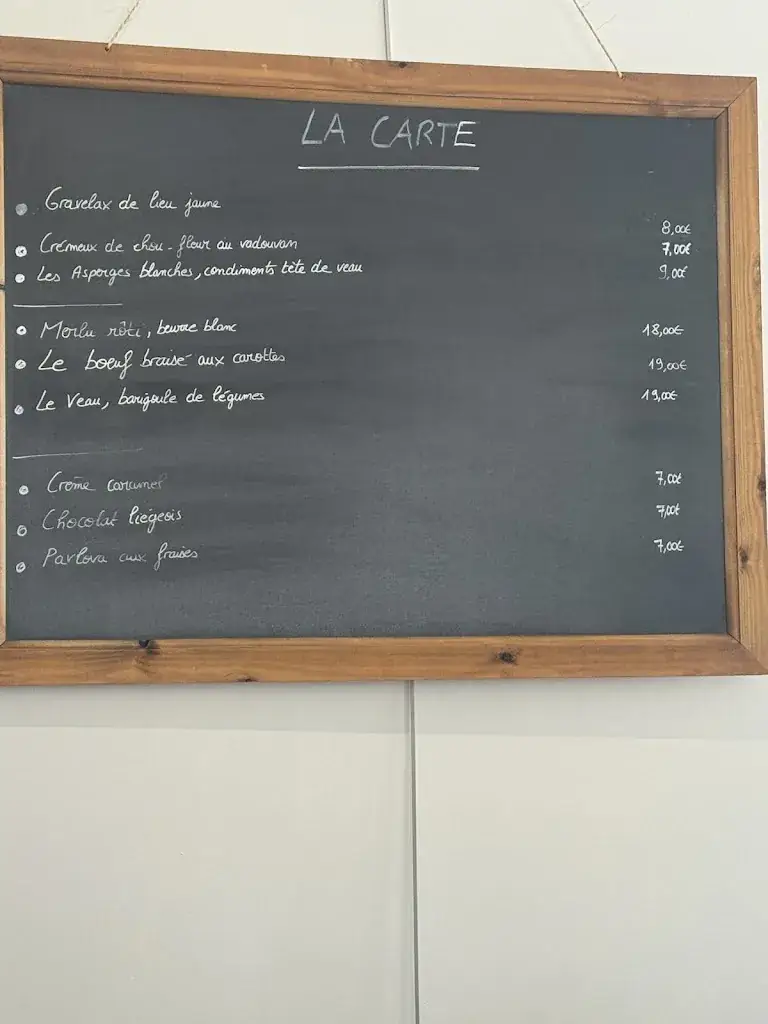 LA CARTE
Gravelax de lieu jaune 8,00€
Crémeux de chou-fleur au vadouvan 7,00€
Les Asperges blanches, condiments tête de veau 9,00€
Merlu rôti, beurre blanc 18,00€
Le boeuf braisé aux carottes 19,00€
Le Veau, barigoule de légumes 19,00€
Crème caramel 7,00€
Chocolat liégeois 7,00€
Pavlova aux fraises 7,00€